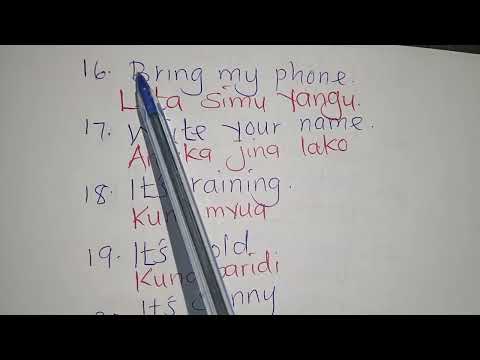 16. Bring my phone.
Leta simu yangu.
17. Write your name.
Andika jina lako
18. It's raining.
Kuna mvua
19. It's cold
Kuna baridi
It's sunny